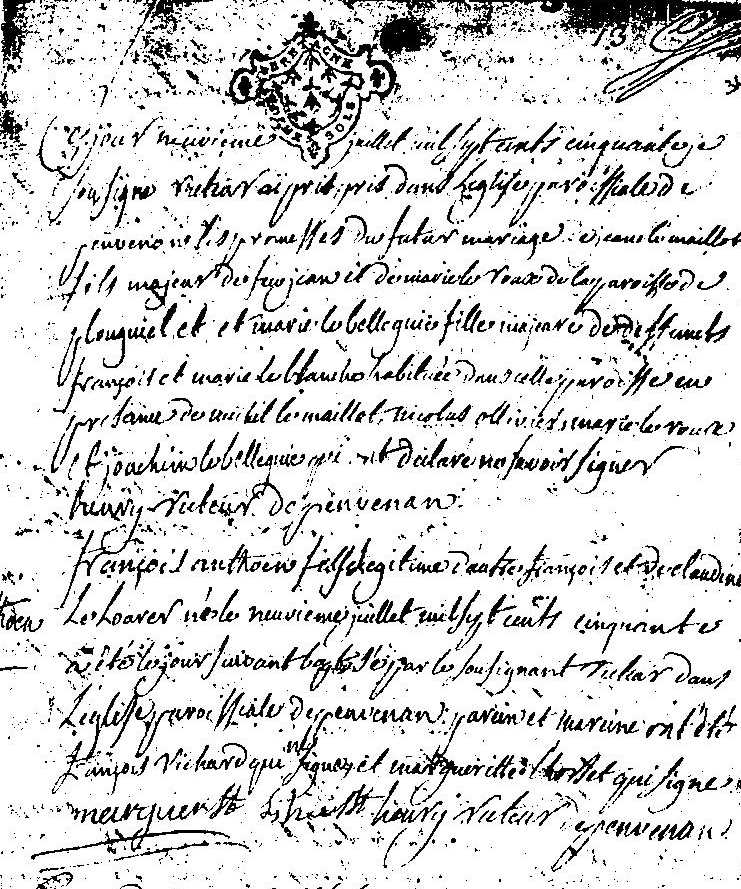 13
Ce jour neuvieme juillet mil sept cents cinquante je
sousigné recteur ai pris dans L'eglise paroissiale de
penvenan les promesses du futur mariage de jean le maillot
fils majeur de feu jean et de marie le roux de la paroisse de
plouguiel et et marie le belleguic fille majeure de deffunts
françois et marie le blanc habituée dans cette paroisse en
presence de michel le maillot, nicolas ollivier, marie le roux
et joachim le belleguic qui ont declaré ne savoir signer
henry recteur de penvenan
françois anthoen fils legitime d'autre françois et de claudine
Le Loarer né le neuvieme juillet mil sept cents cinquante
a été le jour suivant baptisé par le sousignant recteur dans
L'eglise paroissiale de penvenan parain et maraine ont été
françois Richard qui ne signe et margueritte qui signe
margueritte henry recteur de penvenan